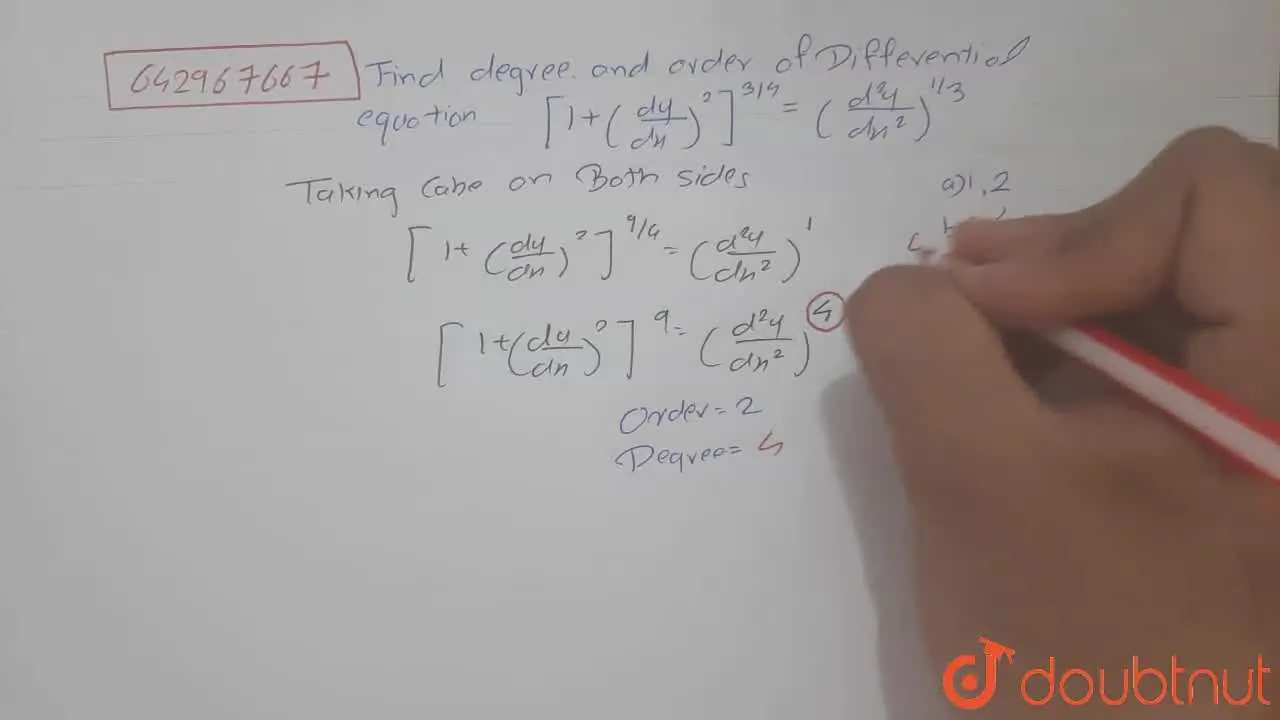 642967667 Find degree and order of Differential
equation [1+(dy/dx)²]^3/4 = (d²y/dx²)^1/3
Taking Cabe on Both sides
a) 1, 2
[1+(dy/dx)²]^9/4 = (d²y/dx²)^1
[1+(dy/dx)²]^9 = (d²y/dx²)^4
Order = 2
Degree = 4
doubtnut